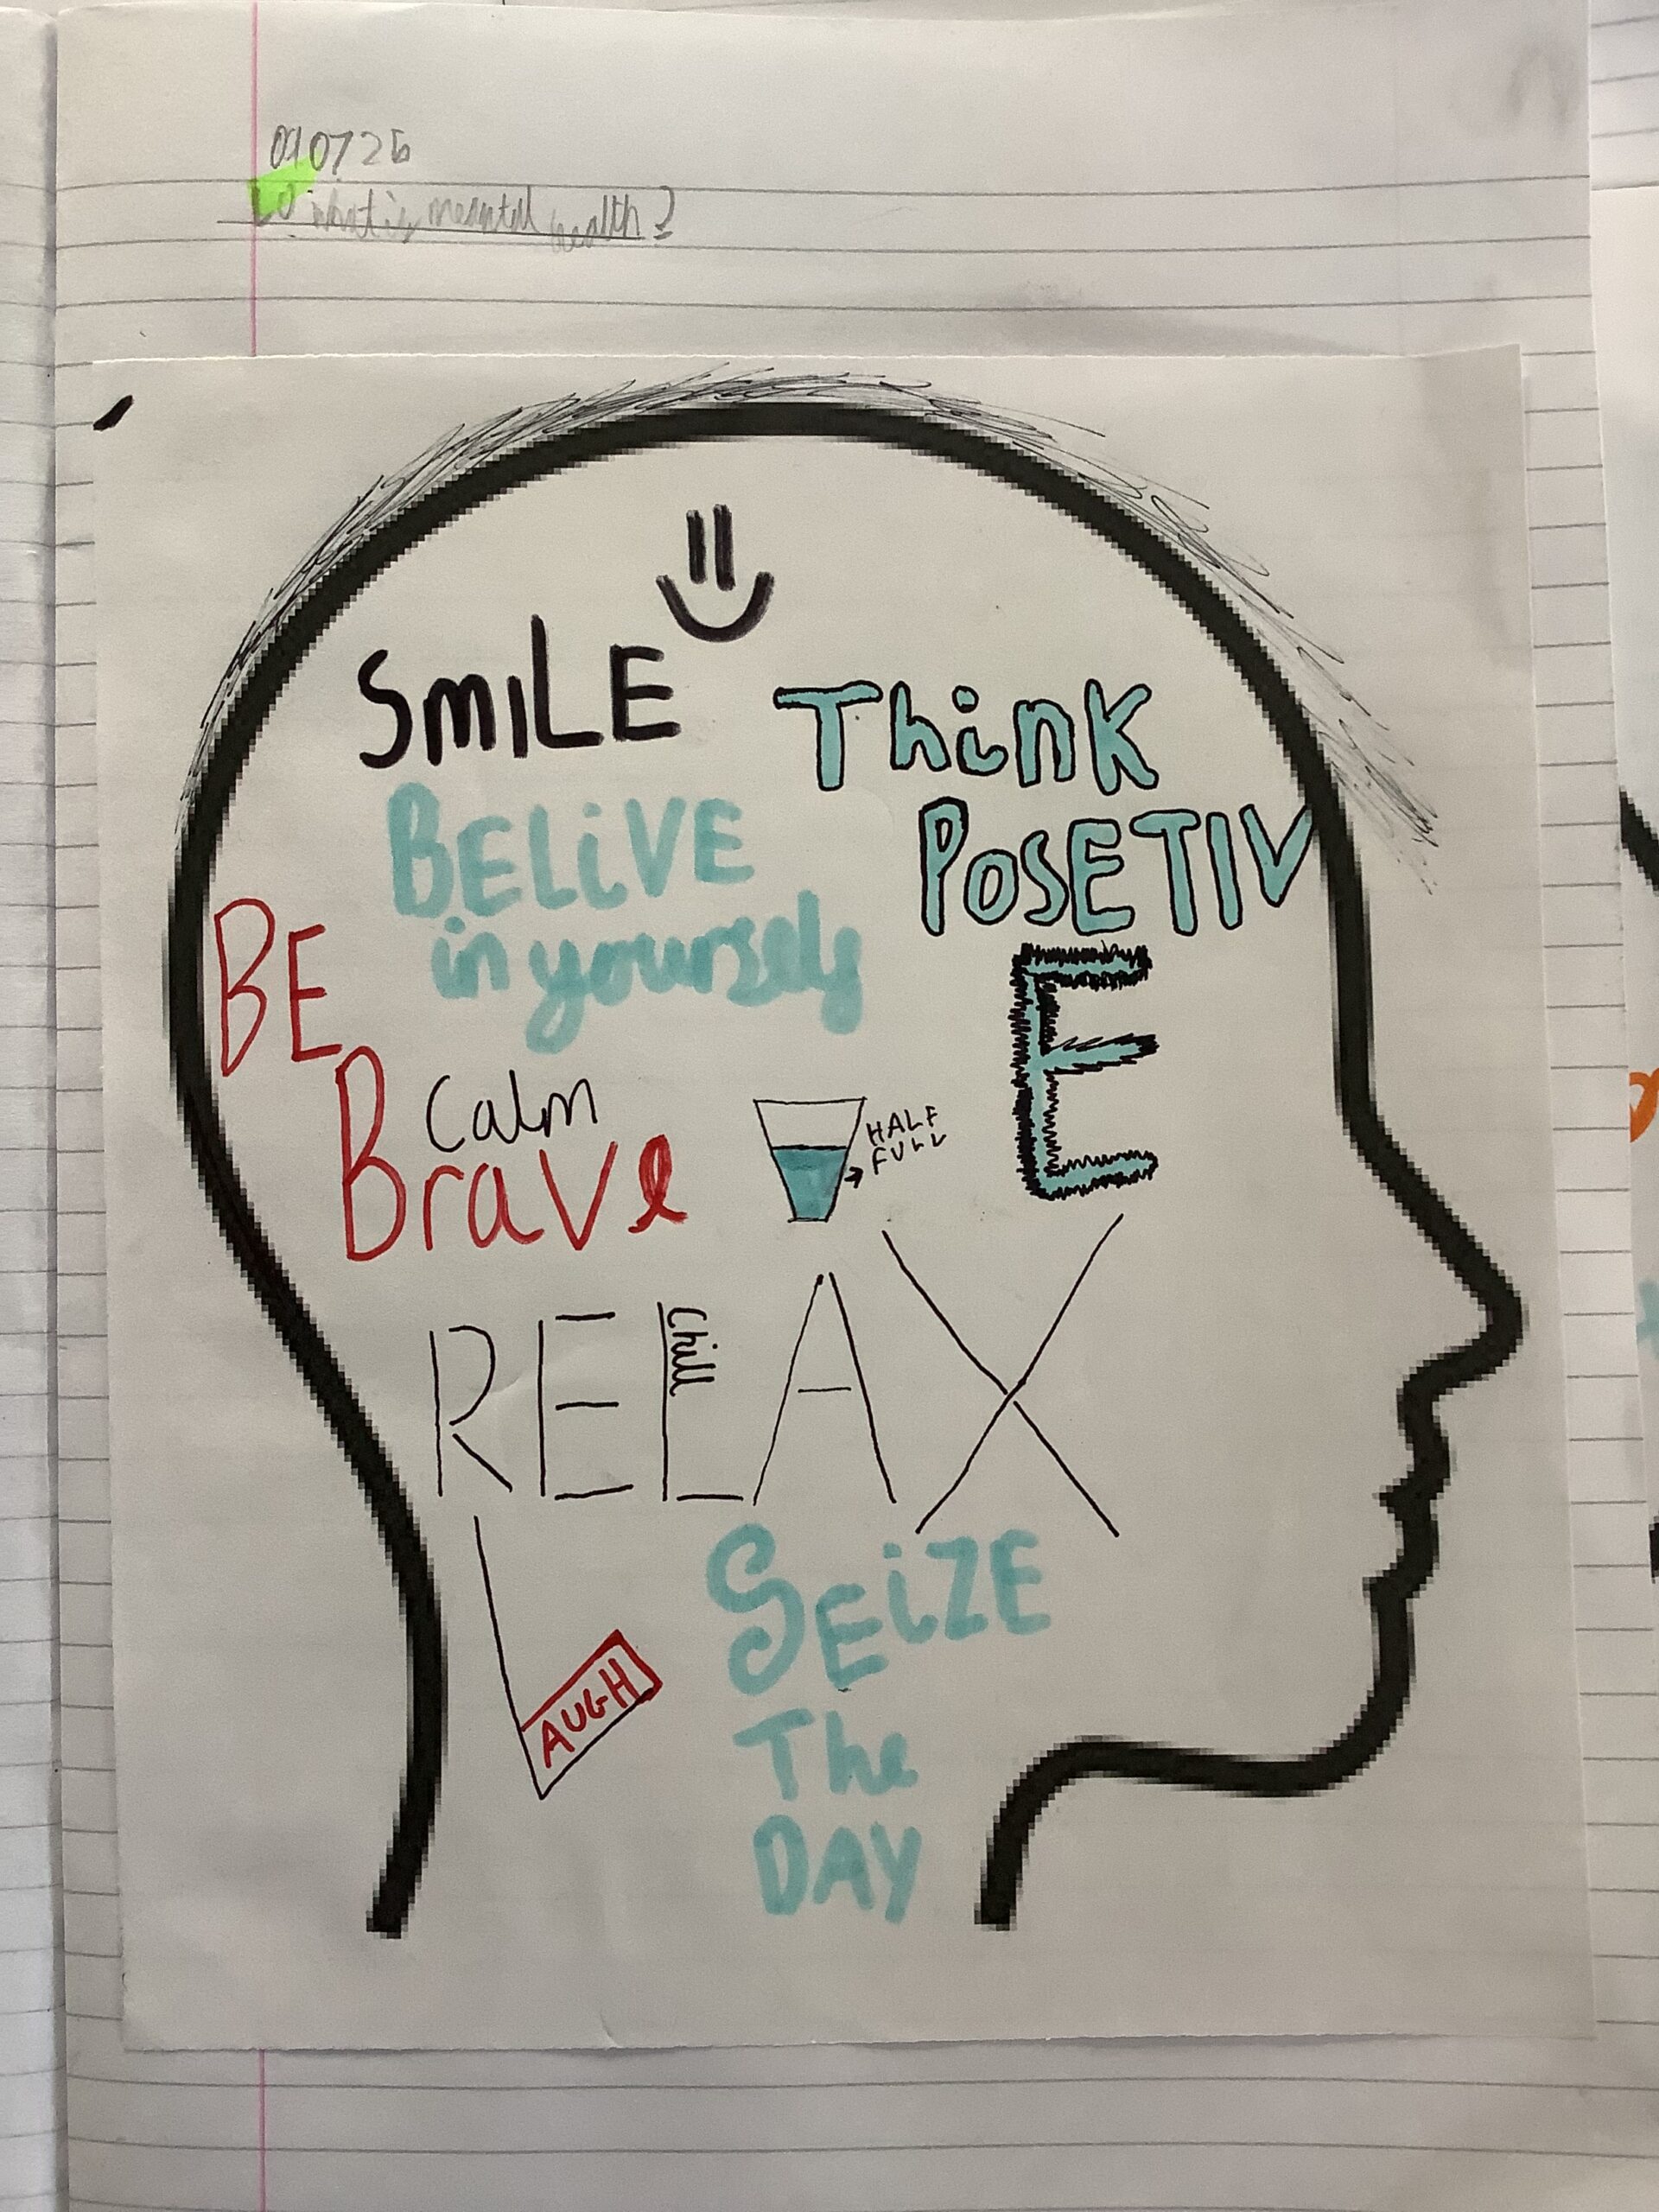 090726
LO: what is meantal health?
SMILE
Think
POSETIV
E
BELiVE
in yourself
BE
Brave
Calm
HALF
FULL
RELAX
Chill
LAUGH
SEiZE
The
DAY